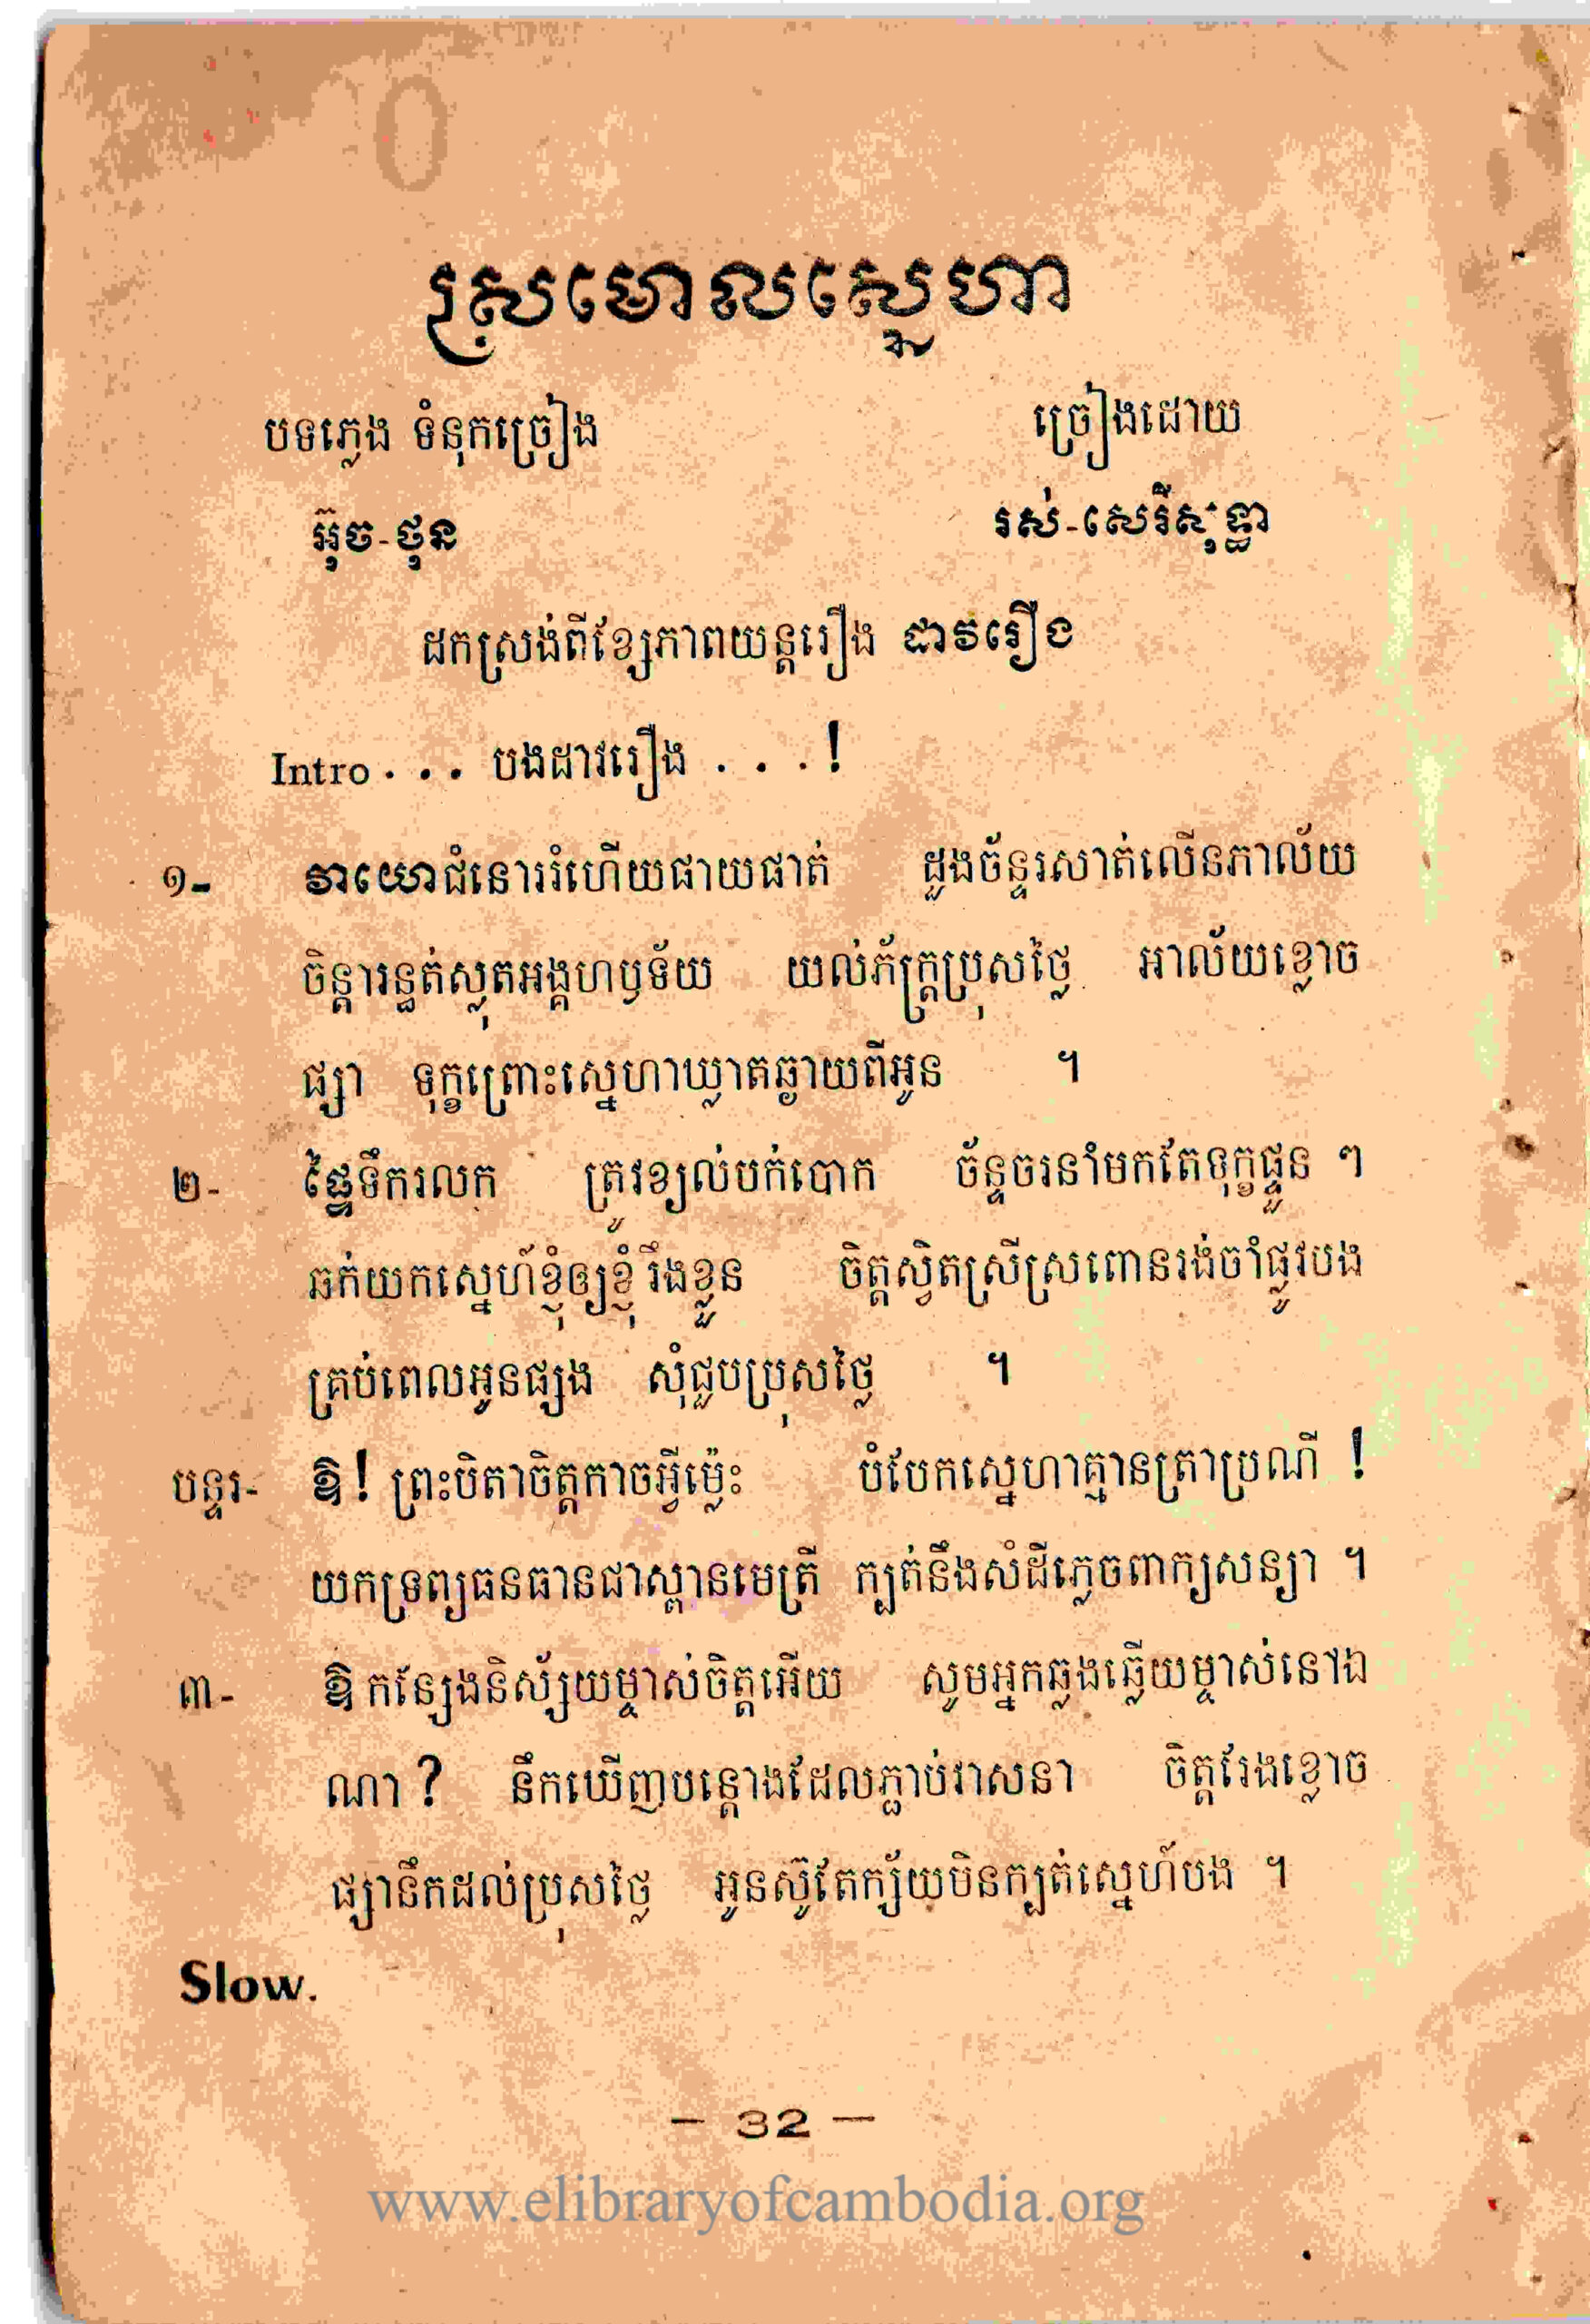 ស្រមោលស្នេហា
បទភ្លេង ទំនុកច្រៀង ច្រៀងដោយ
អ៊ុច-ថុន រស់-សេរីសុទ្ធា
ដកស្រង់ពីខ្សែភាពយន្តរឿង ដាវរឿង
Intro . . . បងដាវរឿង . . . !
១- វាយោជំនោររំហើយផាយផាត់ ដួងច័ន្ទរសាត់លើនភាល័យ
ចិន្តារន្ធត់ស្លុតអង្គហឫទ័យ យល់ភ័ក្ត្រប្រុសថ្លៃ អាល័យខ្លោច
ផ្សា ទុក្ខព្រោះស្នេហាឃ្លាតឆ្ងាយពីអូន ។
២- ផ្ទៃទឹករលក ត្រូវខ្យល់បក់បោក ច័ន្ទចរនាំមកតែទុក្ខផ្ទួន ៗ
ឆក់យកស្នេហ៍ខ្ញុំឲ្យខ្ញុំរឹងខ្លួន ចិត្តស្វិតស្រីស្រពោនរង់ចាំផ្លូវបង
គ្រប់ពេលអូនផ្សង សុំជួបប្រុសថ្លៃ ។
បន្ទរ- ឱ ! ព្រះបិតាចិត្តកាចអ្វីម្ល៉េះ បំបែកស្នេហាគ្មានត្រាប្រណី !
យកទ្រព្យធនធានជាស្ពានមេត្រី ក្បត់នឹងសំដីភ្លេចពាក្យសន្យា ។
៣- ឱ កន្សែងនិស្ស័យម្ចាស់ចិត្តអើយ សូមអ្នកឆ្លងឆ្លើយម្ចាស់នៅឯ
ណា ? នឹកឃើញបន្តោងដែលភ្ជាប់វាសនា ចិត្តរែងខ្លោច
ផ្សានឹកដល់ប្រុសថ្លៃ អូនស៊ូតែក្ស័យមិនក្បត់ស្នេហ៍បង ។
Slow.
— 32 —
www.elibraryofcambodia.org